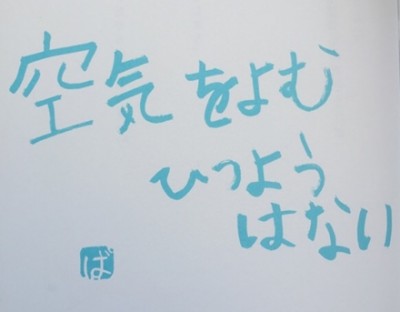 空気をよむ
ひつよう
はない
ば